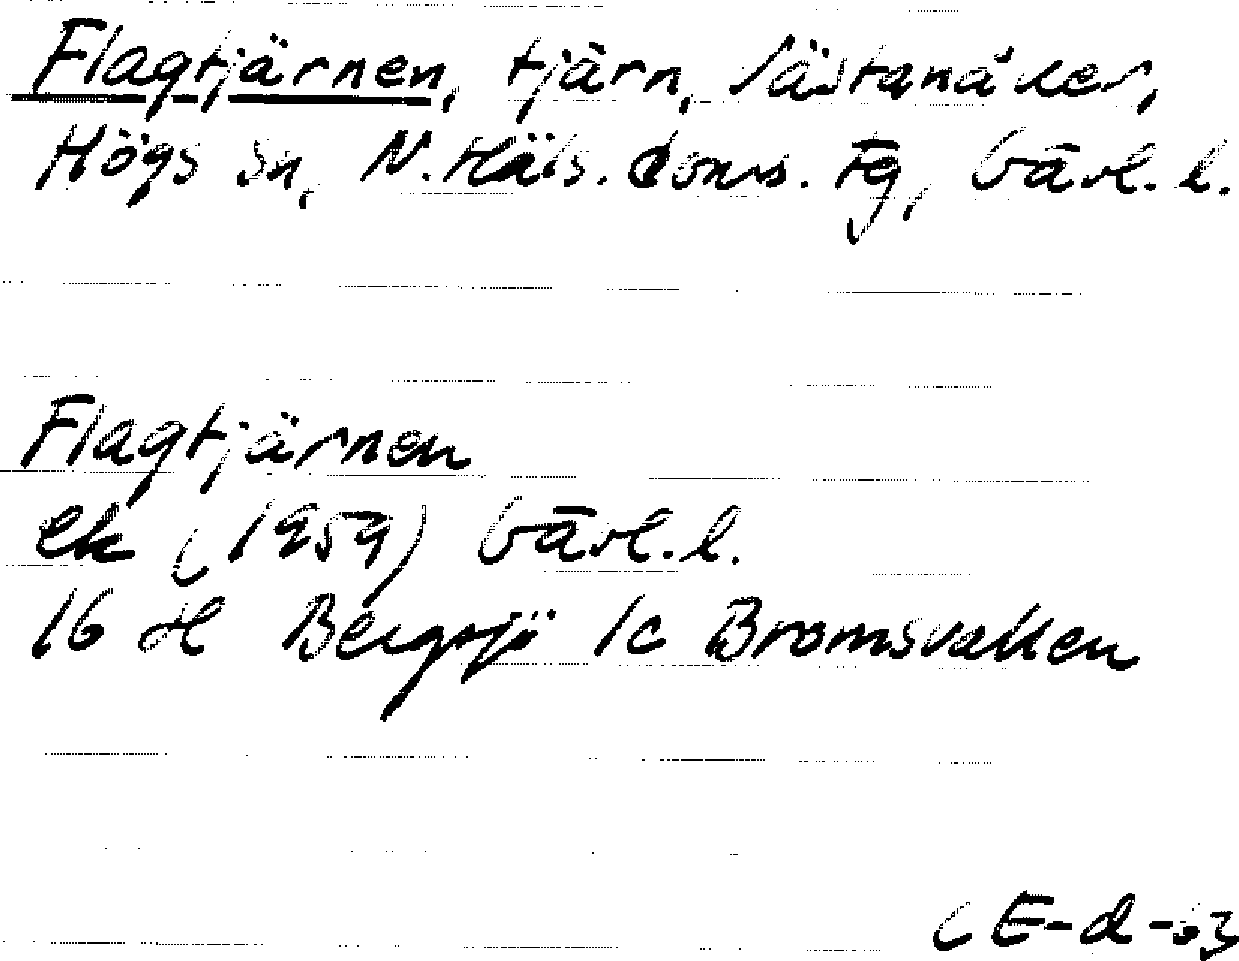 Flagtjärnen, tjärn, Västanåker,
Högs sn, N. Häls. doms. Fg, Gävl. l.
Flagtjärnen
ek (1959) Gävl. l.
16 H Bergsjö 1c Bromsvallen
E-d-63